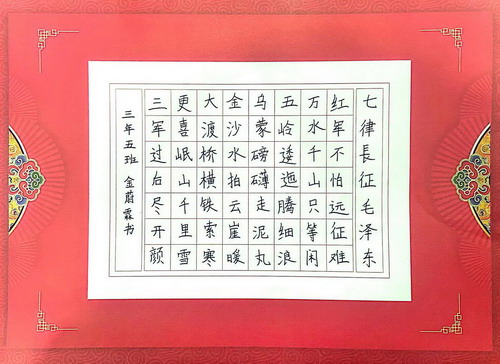 七律長征毛泽东
红军不怕远征难
万水千山只等闲
五岭逶迤腾细浪
乌蒙磅礴走泥丸
金沙水拍云崖暖
大渡桥横铁索寒
更喜岷山千里雪
三军过后尽开颜
三年五班 金蔚霖书